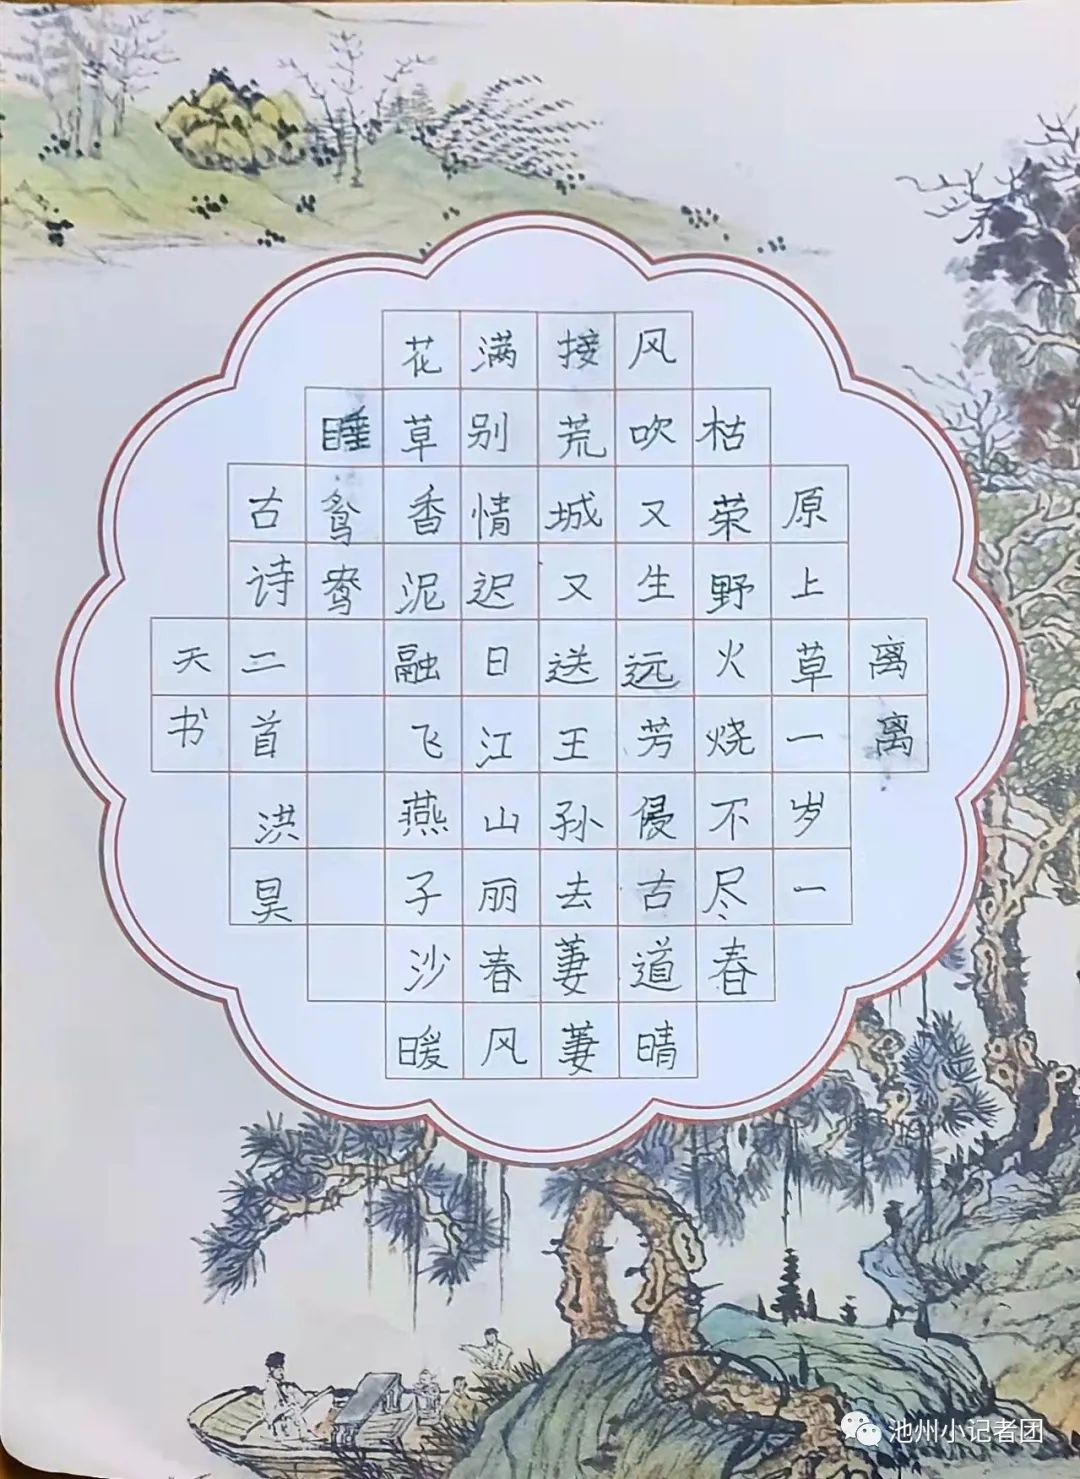 离离
原上草一岁一
枯荣野火烧不尽春
风吹又生远芳侵古道晴
接荒城又送王孙去萋萋
满别情迟日江山丽春风
花草香泥融飞燕子沙暖
睡鸳鸯
古诗二首洪昊
天书
池州小记者团